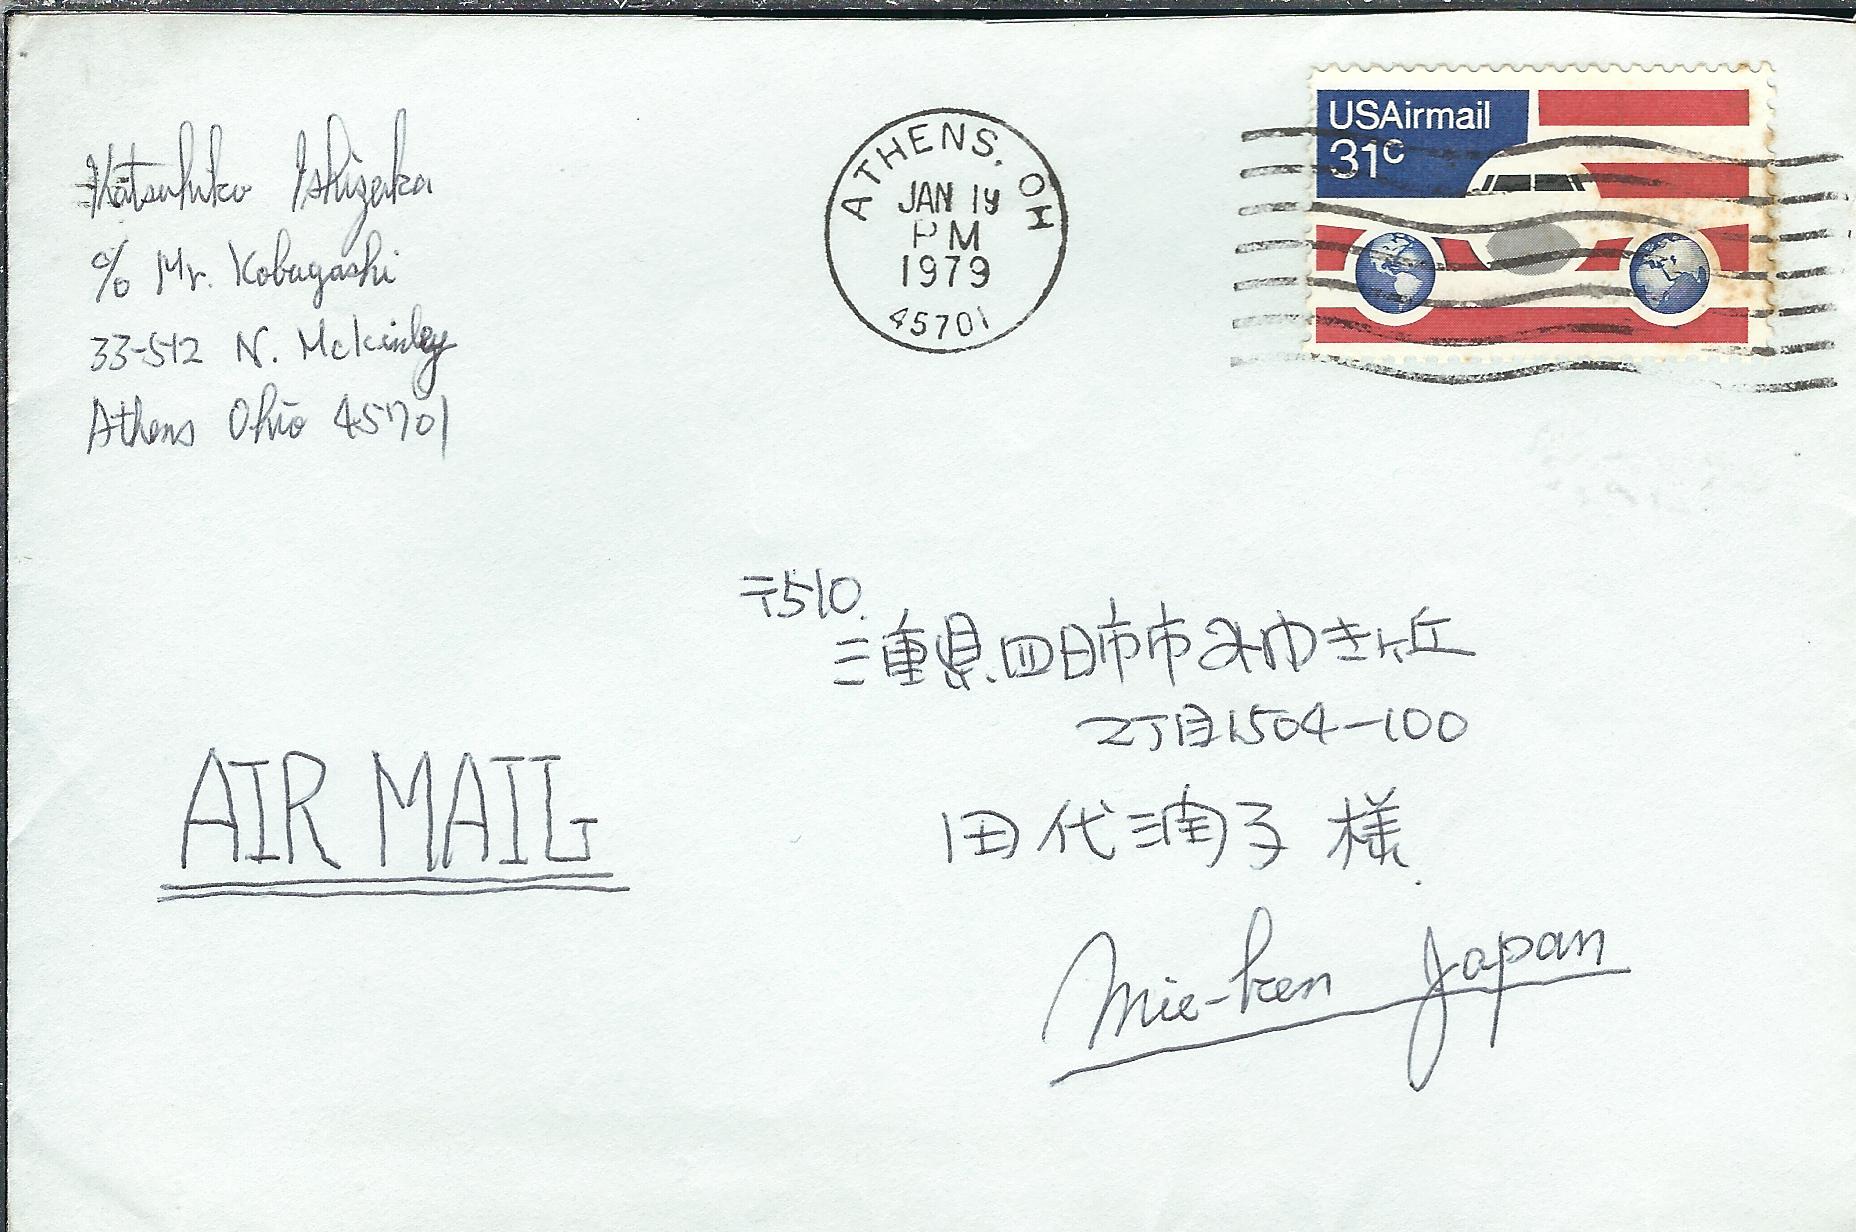 Katsuhiko Ishizaka
c/o Mr. Kobayashi
33-512 N. Mckinley
Athens Ohio 45701
ATHENS, OH
JAN 19
PM
1979
45701
USAirmail
31c
〒510
三重県四日市市みゆきヶ丘
2丁目1504-100
田代潤子様
AIR MAIL
Mie-ken Japan